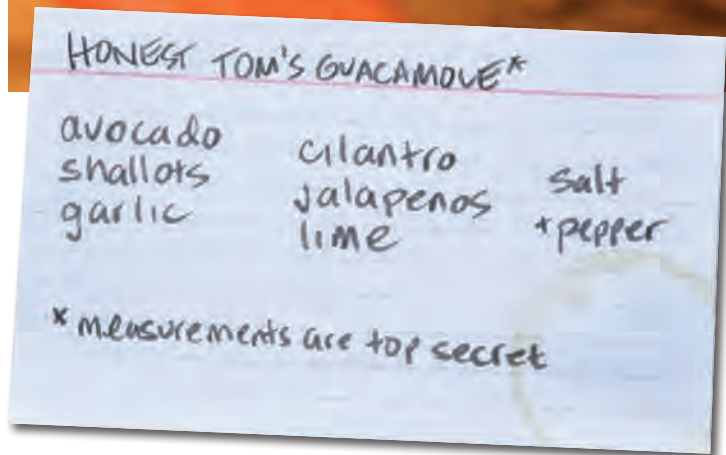 HONEST TOM'S GUACAMOLE*
avocado
shallots
garlic
cilantro
jalapenos
lime
salt
+pepper
* measurements are top secret